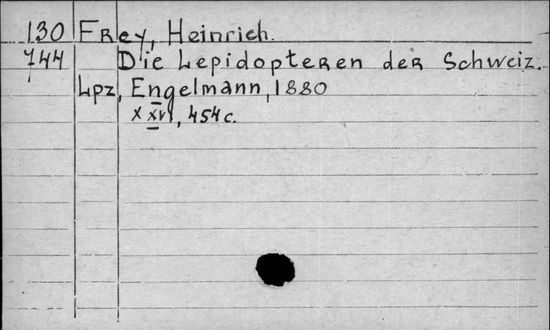 130 Frey, Heinrich.
744 Die Lepidopteren der Schweiz.
Lpz, Engelmann, 1880
XXVI, 454 c.